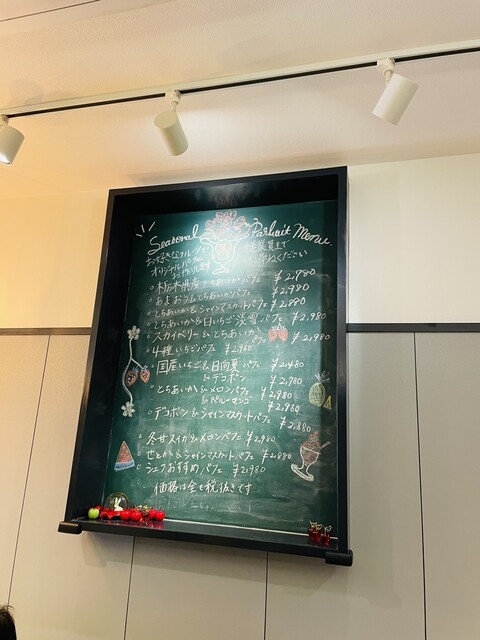 Seasonal Parfait Menu.
お好きなフルーツで
オリジナルパフェ
お作りします
従業員まで
お尋ねください
○栃木県産とちあいかパフェ ¥2,980
○あまおう&とちあいかパフェ ¥2,980
○とちあいか&シャインマスカットパフェ ¥2,880
○とちあいか&白いちご淡雪パフェ ¥2,980
○スカイベリー&とちあいかパフェ ¥2,980
○4種いちごパフェ ¥2,980
○国産いちご&日向夏パフェ ¥2,480
&デコポン ¥2,780
○とちあいか&メロンパフェ ¥2,980
&ペルーマンゴ ¥2,980
○デコポン&シャインマスカットパフェ ¥2,880
○冬サスイカ&メロンパフェ ¥2,980
○せとか&シャインマスカットパフェ ¥2,880
○シェフおすすめパフェ ¥2,980
価格は全て税抜きです